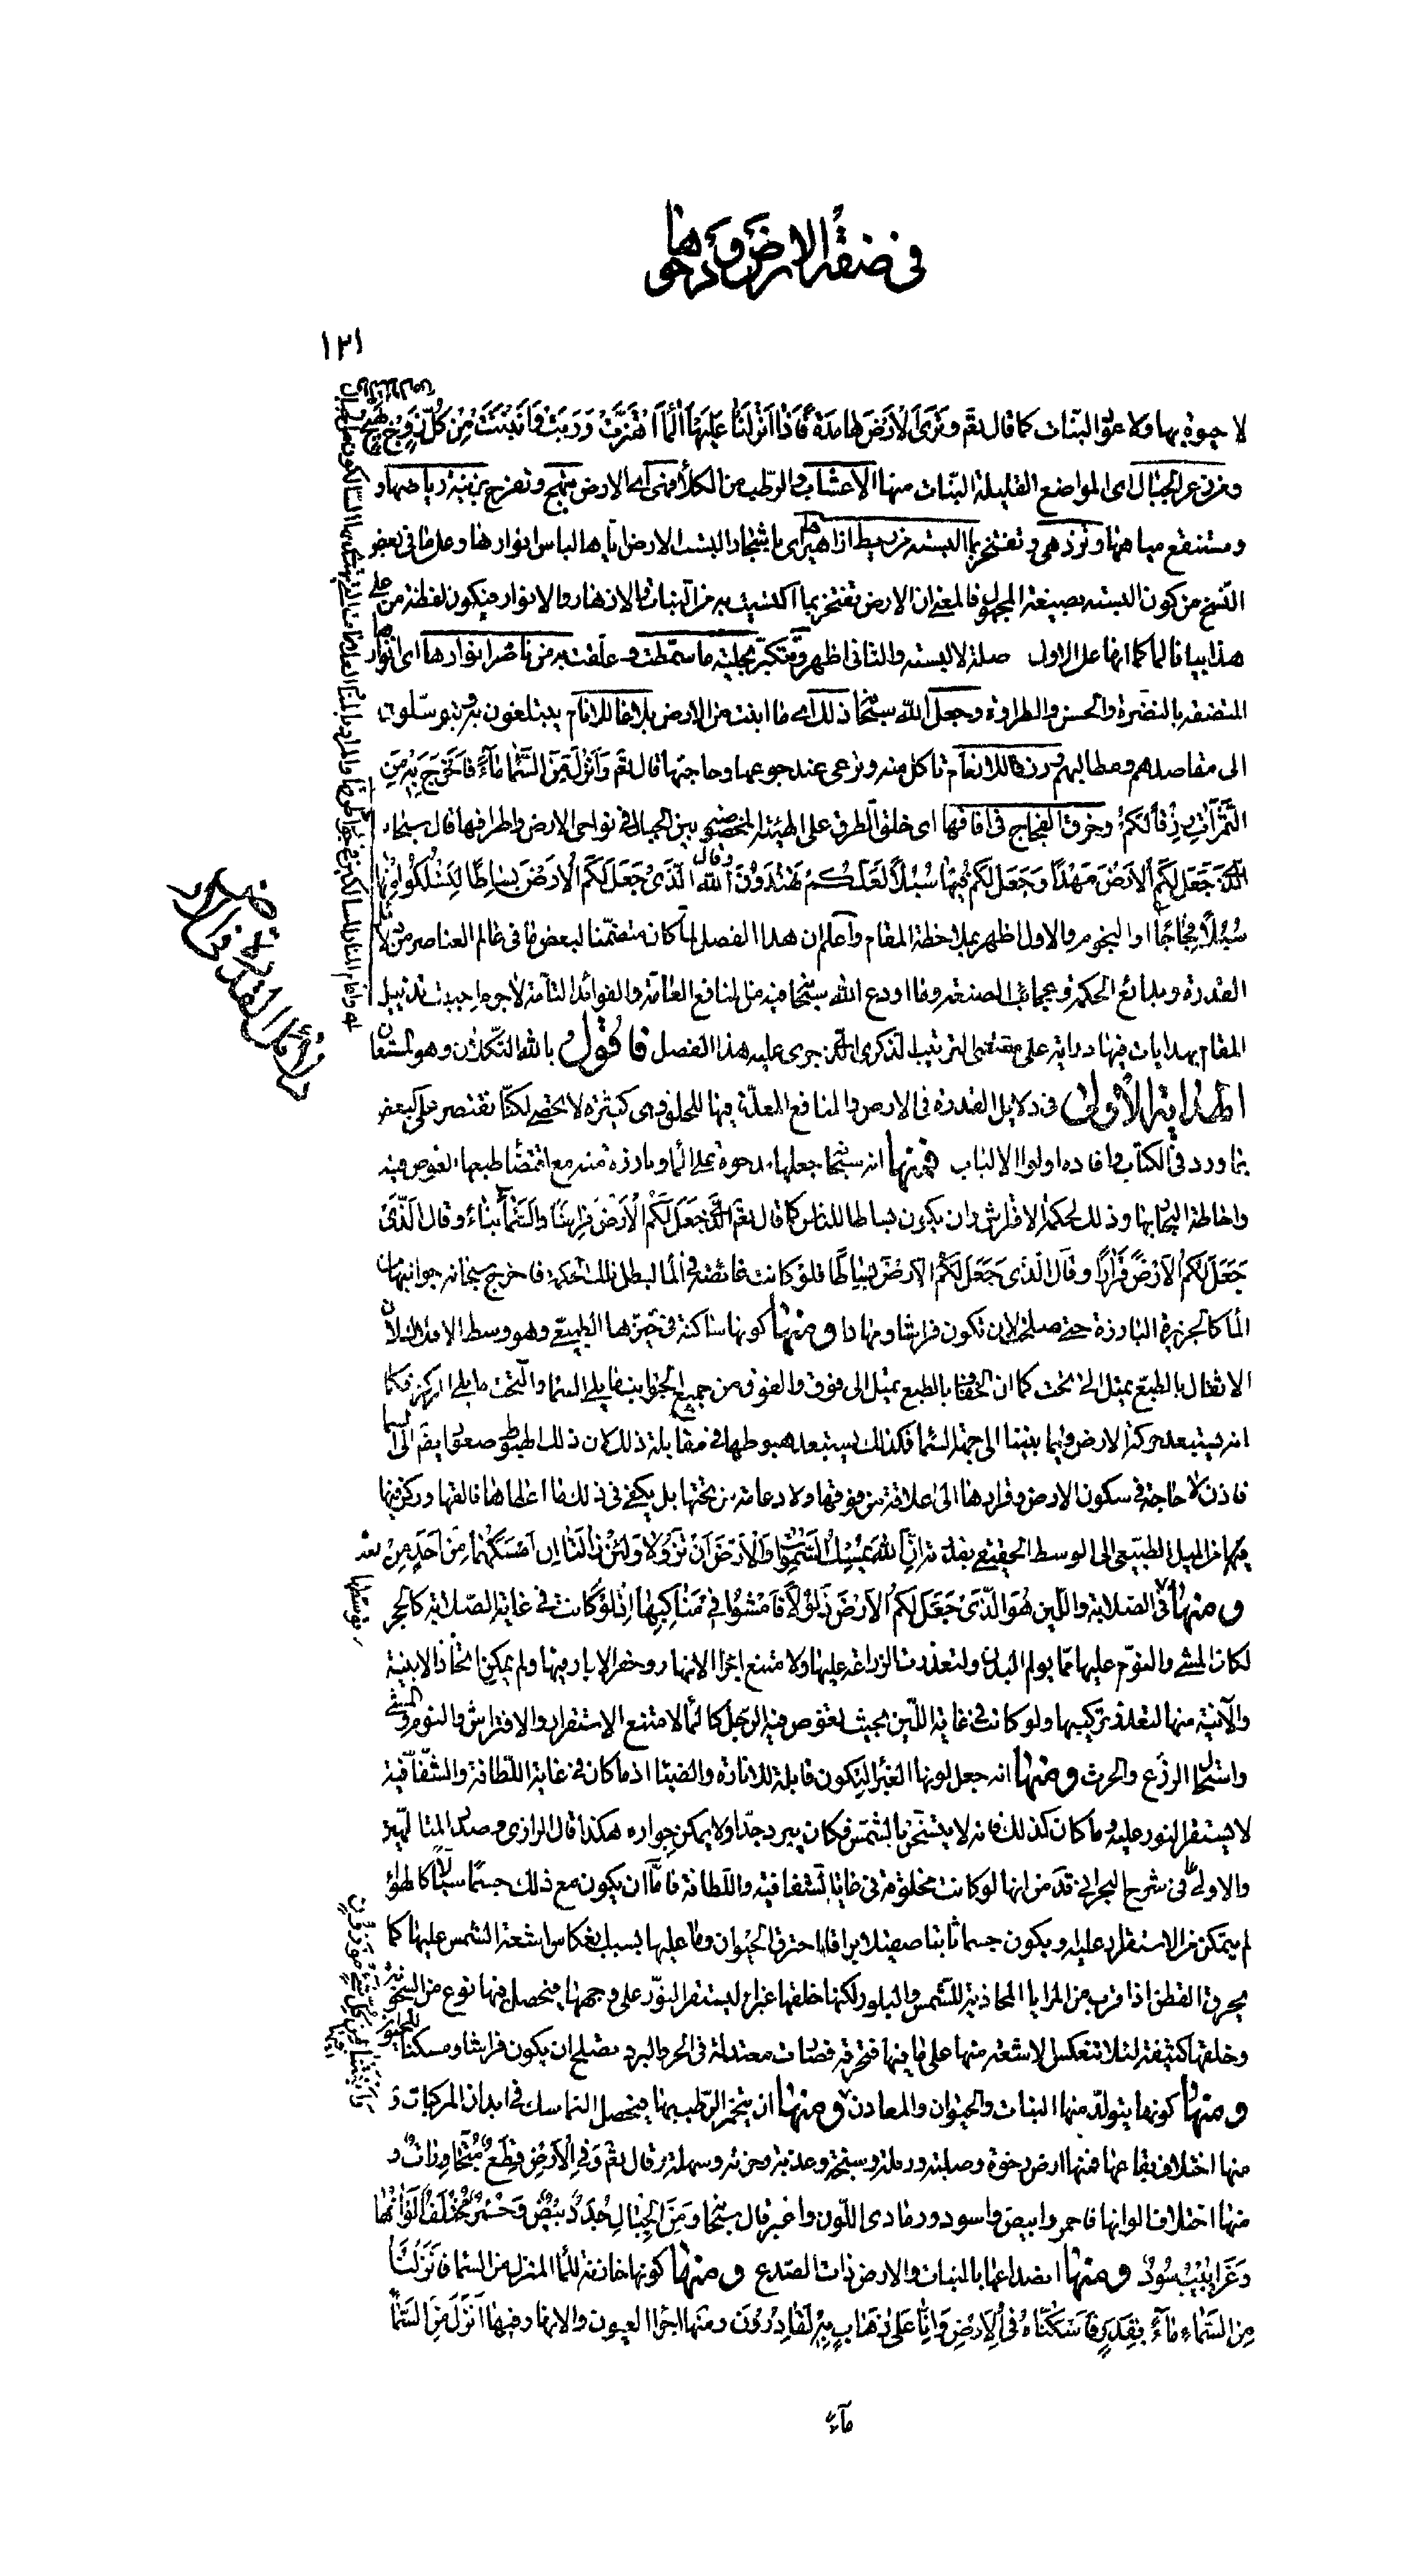 في صفة الارض ودحوها
١٢١
لا حيوة بها ولا عرق النبات كما قال تعم وترى الارض هامدة فاذا انزلنا عليها الماء اهتزت وربت وانبتت من كل زوج بهيج
وعرق عر الجبال اى المواضع القليلة النبات منها الاعشاب والرطب من الكلأ فهى اى الارض تبتهج وتفرح بزينة رياضها و
ومستنقع مياهها وتزدهى وتفتخر بما البسته من ريط ازاهيرها اى ما سبحانه البست الارض اياها لباس انوارها وعلى ما فى بعض
النسخ من كون البسته بصيغة المجهول فالمعنى ان الارض تفتخر بما اكتسيت به من النبات والازهار والانوار فيكون لفظة من على
هذا بيانا لما كما انها على الاول صلة لالبسته والثانى اظهر وتتكبر بحلية ما سمطت وعلقت به من ناضر انوارها اى انوارها
المتصفة بالنضرة والحسن والطراوة وجعل الله سبحانه ذلك اى ما انبت من الارض بلاغا للانام يبتلغون به ويتوسلون
الى مقاصدهم ومطالبهم ورزقا للانعام تاكل منه وترعى عند جوعها وحاجتها قال تعم وانزل من السماء ماء فاخرج به من
الثمرات رزقا لكم وخرق الفجاج فى افاقها اى خلق الطرق على الهيئة المخصوصة بين الجبال فى نواحى الارض واطرافها قال سبحانه
الذى جعل لكم الارض مهدا وجعل لكم فيها سبلا لعلكم تهتدون وقال الله الذى جعل لكم الارض بساطا لتسلكوا منها
سبلا فجاجا او النجوم والاول اظهر بملاحظة المقام واعلم ان هذا الفصل لما كان متضمنا لبعض ما فى عالم العناصر من دلائل
القدرة وبدائع الحكمة وعجائب الصنعة وما اودع الله سبحانه فيه من المنافع العامة والفوائد التامة لاجرم احببت تذييل
المقام بهدايات فيها دراية على مقتضى الترتيب الذكرى الذى جرى عليه هذا الفصل فاقول وبالله التكلان وهو المستعان
الهداية الاولى فى دلايل القدرة فى الارض والمنافع المعدة فيها للخلق وهى كثيرة لا تحصى لكنا نقتصر على البعض
بما ورد فى الكتاب وافاده اولوا الالباب فمنها انه سبحانه جعلها مدحوة على الماء وبارزة منه مع اقتضاء طبعها الغوص فيه
واحاطة البحار بها وذلك لحكمة الافتراش وان يكون بساطا للناس كما قال تعم الذى جعل لكم الارض فراشا والسماء بناء وقال الذى
جعل لكم الارض قرارا وقال الذى جعل لكم الارض بساطا فلو كانت غائصة فى الماء لبطل تلك الحكمة فاخرج سبحانه جوانبها من
الماء كالجزيرة البارزة حتى صلحت لان تكون فراشا ومهادا ومنها كونها ساكنة فى حيزها الطبيعى وهو وسط الافلاك لان
الاثقال بالطبع تميل الى تحت كما ان الخفاف بالطبع تميل الى فوق والفوق من جميع الجوانب ما يلى السماء والتحت ما يلى المركز فكما
انه يستبعد حركة الارض فيما بيننا الى جهة السماء فكذلك يستبعد هبوطها فى مقابلة ذلك لان ذلك الهبوط صعود ايضا الى السماء
فاذن لا حاجة فى سكون الارض وقرارها الى علاقة من فوقها ولا دعامة من تحتها بل يكفى فى ذلك ما اعطاها خالقها وركز فيها
فيها من الميل الطبيعى الى الوسط الحقيقى بقدرته ان الله يمسك السموات والارض ان تزولا ولئن زالتا ان امسكهما من احد من بعد
ومنها توسطها فى الصلابة واللين هو الذى جعل لكم الارض ذلولا فامشوا فى مناكبها اذ لو كانت فى غاية الصلابة كالحجر
لكان المشى والنوم عليها مما يولم البدن ولتعذرت الزراعة عليها ولامتنع اجراء الانهار وحفر الابار فيها ولم يمكن اتخاذ الابنية
والآنية منها لتعذر تركيبها ولو كانت فى غاية اللين بحيث يغوص فيه الرجل كالماء لامتنع الاستقرار والافتراش والنوم والمشى
واستحال الزرع والحرث ومنها انه جعل لونها الغبراء ليكون قابلة للانارة والضياء اذ ما كان فى غاية اللطافة والشفافية
لا يستقر النور عليه وما كان كذلك فانه لا يتسخن بالشمس فكان يبرد جدا ولا يمكن جواره هكذا قال الرازى وصدر المتالهين
والاولى فى شرح البحرانى قد من انها لو كانت مخلوقة فى غاية الشفافية واللطافة فاما ان يكون مع ذلك جسما سيالا كالهواء
لم يتمكن من الاستقرار عليه ويكون جسما ثابتا صقيلا براقا احترق الحيوان وما عليها بسبب انعكاس اشعة الشمس عليها كما
يحرق القطن اذا قرب من المرايا المحاذية للشمس والبلور لكنها خلقها غبراء ليستقر النور على وجهها فيحصل فيها نوع من السخونة
وخلقها كثيفة لئلا تنعكس الاشعة منها على ما فيها فتحرقه فصارت معتدلة فى الحر والبرد تصلح ان يكون فراشا ومسكنا للحيوان
ومنها كونها يتولد منها النبات والحيوان والمعادن ومنها ان يتخمر الرطب بها فيحصل التماسك فى ابدان المركبات و
منها اختلاف بقاعها فمنها ارض رخوة وصلبة ورملة وسبخة وعذبة وحزنة وسهلة وقال تعم وفى الارض قطع متجاورات و
منها اختلاف الوانها فاحمر وابيض واسود ورمادى اللون واغبر قال سبحانه ومن الجبال جدد بيض وحمر مختلف الوانها
وغرابيب سود ومنها انصداعها بالنبات والارض ذات الصدع ومنها كونها خازنة للماء المنزل من السماء وانزلنا
من السماء ماء بقدر فاسكناه فى الارض وانا على ذهاب به لقادرون ومنها اجراء العيون والانهار فيها انزل من السماء
ماء